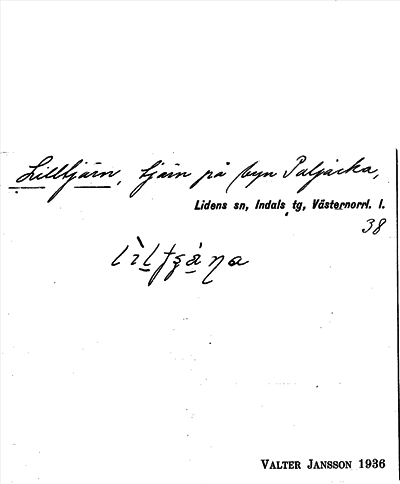 Lilltjärn, tjärn på byn Paljacka,
Lidens sn, Indals tg, Västernorrl. l.
38
VALTER JANSSON 1936